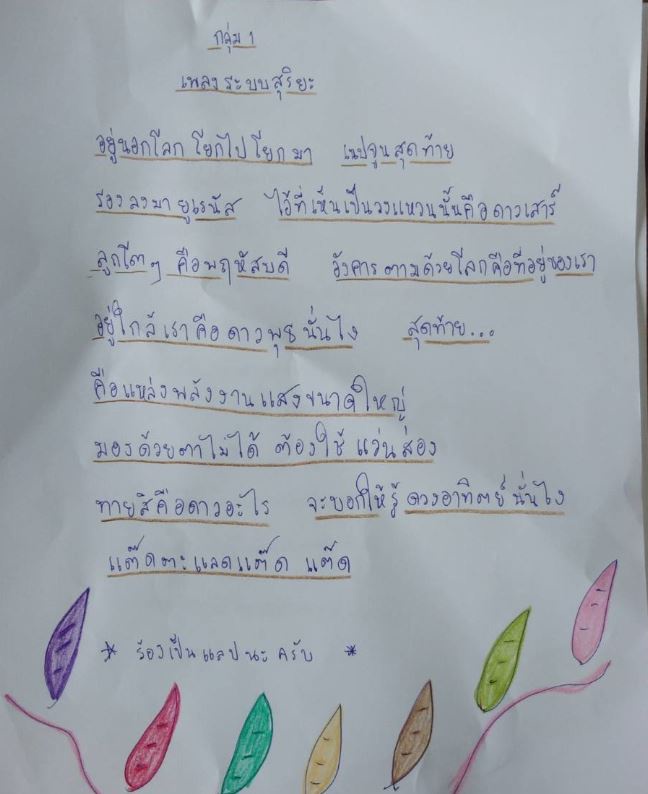 กลุ่ม 1
เพลงระบบสุริยะ
อยู่นอกโลก โยกไปโยกมา เนปจูนสุดท้าย
รองลงมา ยูเรนัส ไอ้ที่เห็นเป็นวงแหวนนั้นคือดาวเสาร์
ลูกโตๆ คือพฤหัสบดี อังคารตามด้วยโลกคือที่อยู่ของเรา
อยู่ใกล้เราคือดาวพุธนั่นไง สุดท้าย...
คือแหล่งพลังงานแสงขนาดใหญ่
มองด้วยตาไม่ได้ ต้องใช้ แว่นส่อง
ทายสิคือดาวอะไร จะบอกให้รู้ ดวงอาทิตย์ นั่นไง
แต๊ดตะแลดแต๊ด แต๊ด
* ร้องเป็นแลปนะครับ *